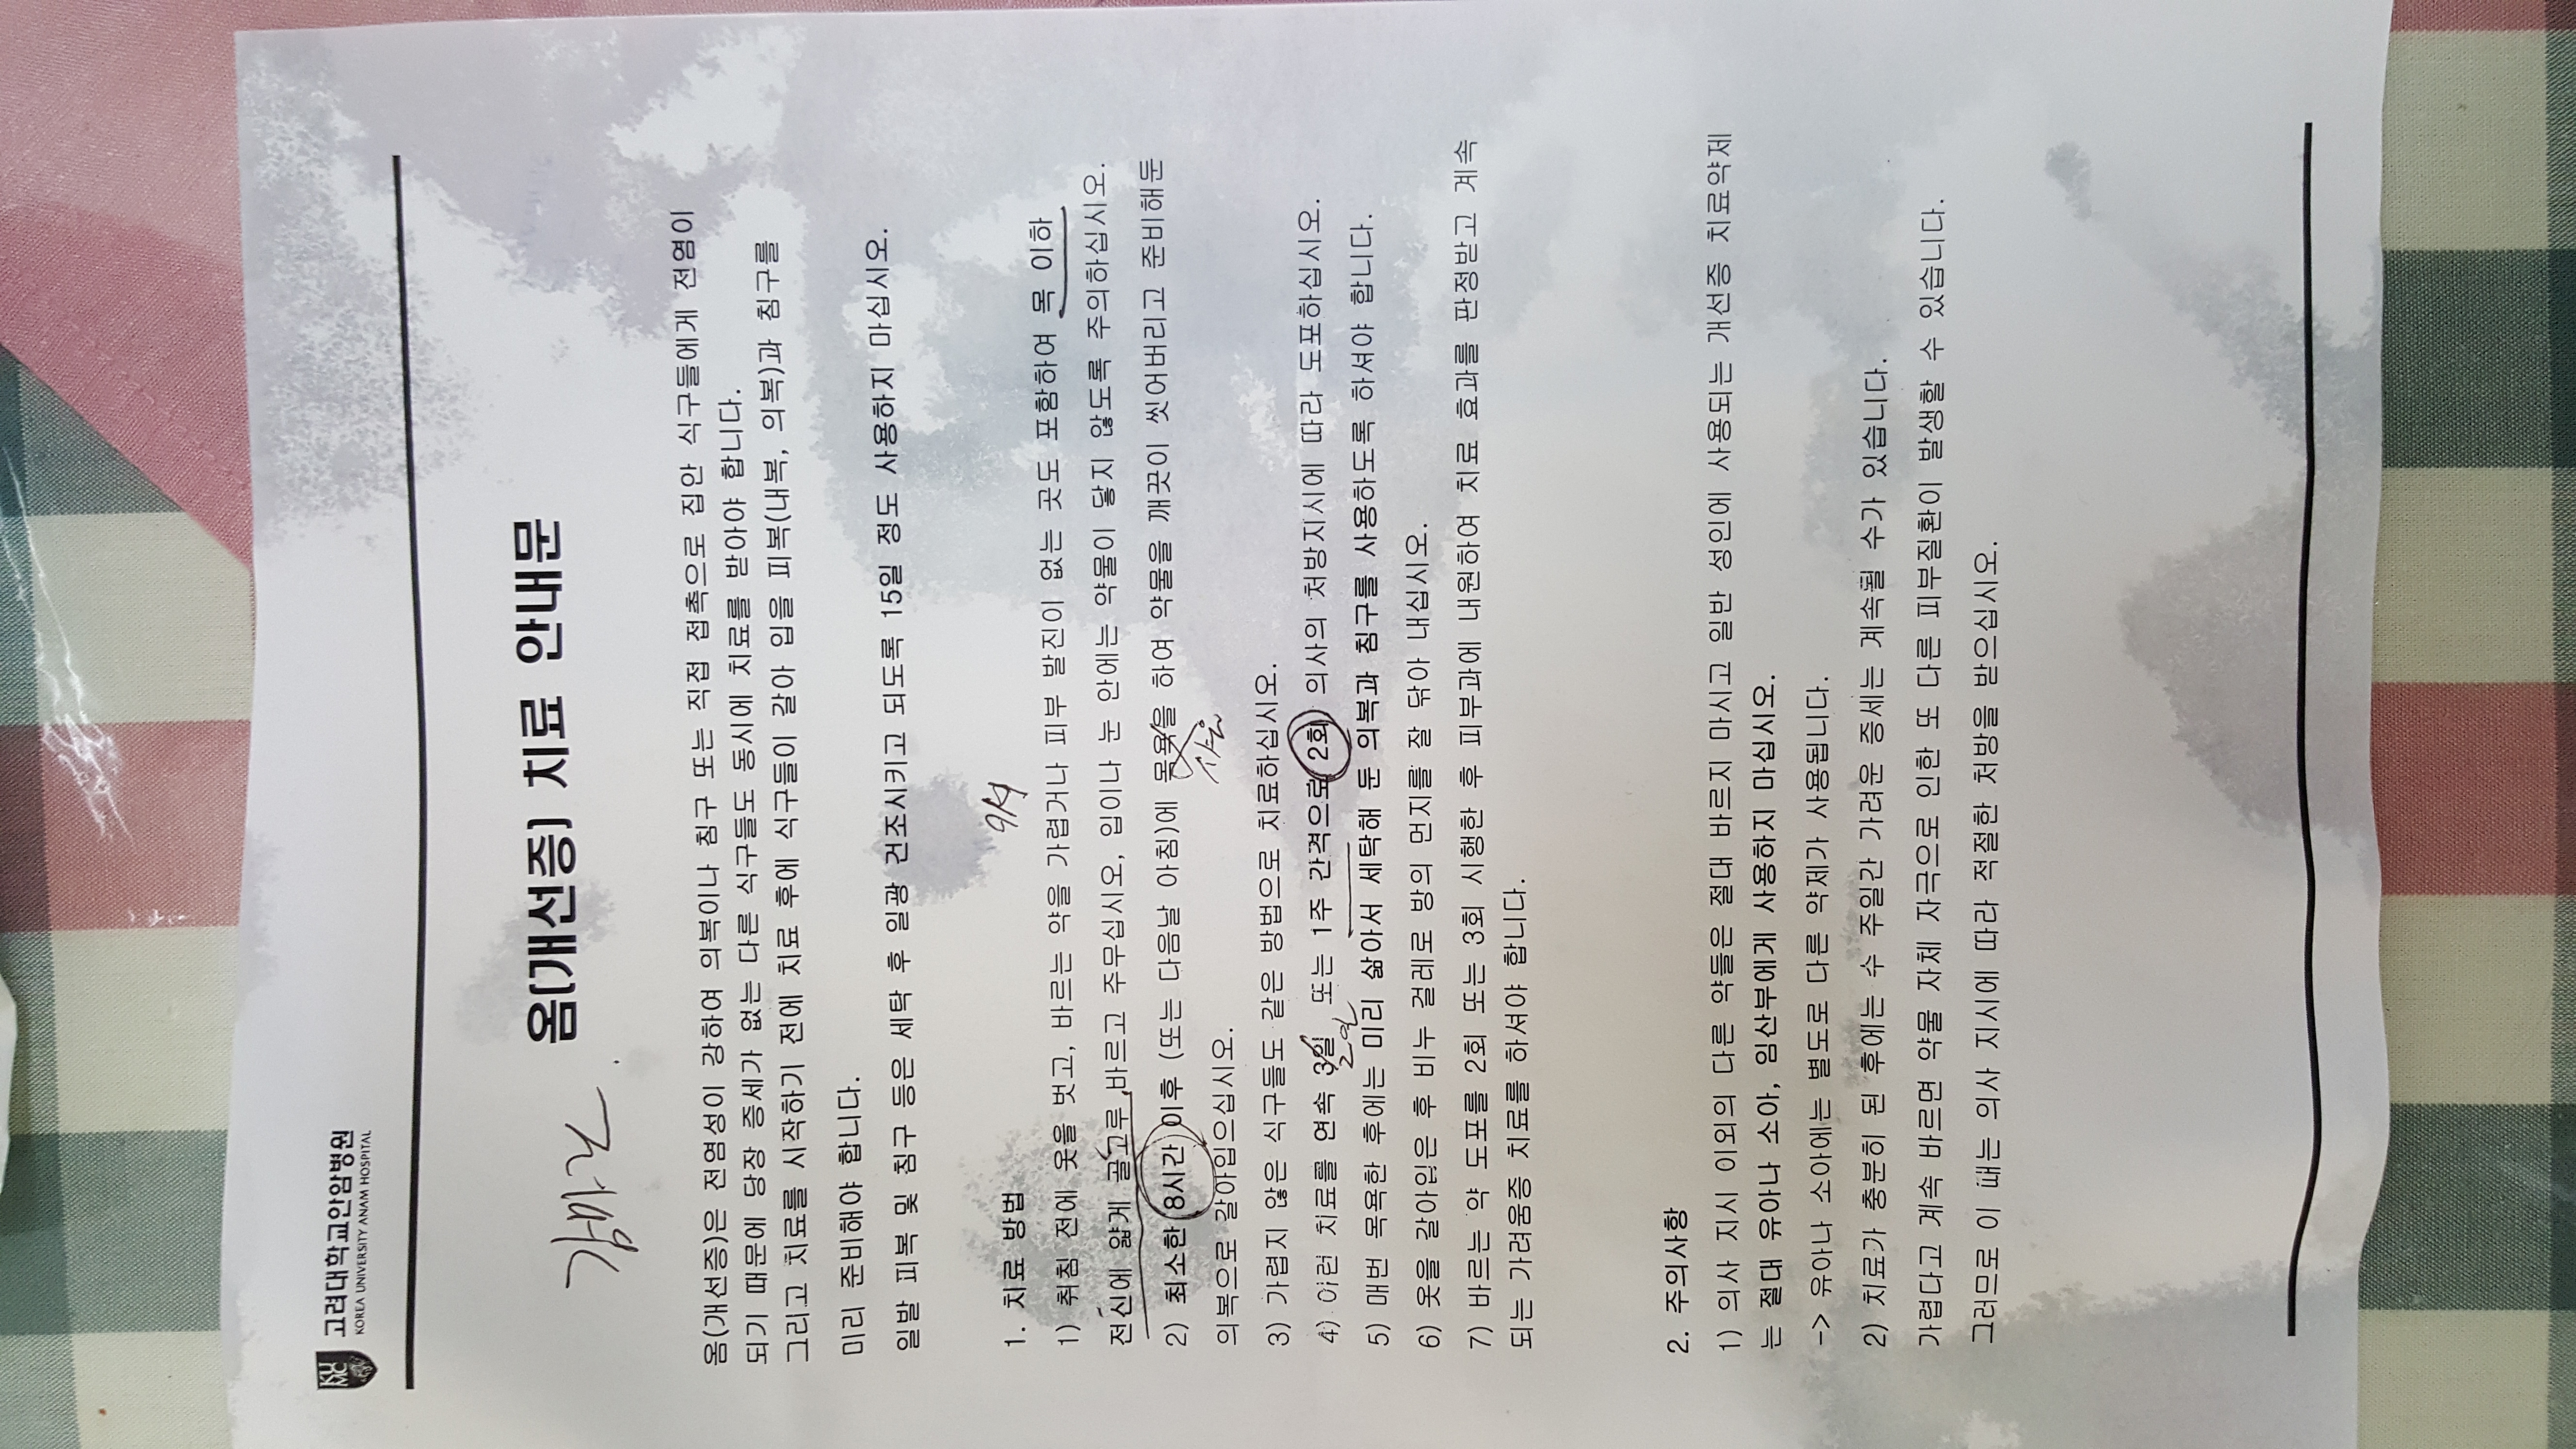 고려대학교안암병원
KOREA UNIVERSITY ANAM HOSPITAL
옴(개선증) 치료 안내문
옴(개선증)은 전염성이 강하여 의복이나 침구 또는 직접 접촉으로 집안 식구들에게 전염이
되기 때문에 당장 증세가 없는 다른 식구들도 동시에 치료를 받아야 합니다.
그리고 치료를 시작하기 전에 치료 후에 식구들이 갈아 입을 피복(내복, 의복)과 침구를
미리 준비해야 합니다.
일발 피복 및 침구 등은 세탁 후 일광 건조시키고 되도록 15일 정도 사용하지 마십시오.
1. 치료 방법
9시
1) 취침 전에 옷을 벗고, 바르는 약을 가렵거나 피부 발진이 없는 곳도 포함하여 목 이하
전신에 얇게 골고루 바르고 주무십시오, 입이나 눈 안에는 약물이 닿지 않도록 주의하십시오.
2) 최소한 8시간 이후 (또는 다음날 아침)에 목욕을 하여 약물을 깨끗이 씻어버리고 준비해둔
샤워
의복으로 갈아입으십시오.
3) 가렵지 않은 식구들도 같은 방법으로 치료하십시오.
4) 이런 치료를 연속 3일 또는 1주 간격으로 2회 의사의 처방지시에 따라 도포하십시오.
5) 매번 목욕한 후에는 미리 삶아서 세탁해 둔 의복과 침구를 사용하도록 하셔야 합니다.
6) 옷을 갈아입은 후 비누 걸레로 방의 먼지를 잘 닦아 내십시오.
7) 바르는 약 도포를 2회 또는 3회 시행한 후 피부과에 내원하여 치료 효과를 판정받고 계속
되는 가려움증 치료를 하셔야 합니다.
2. 주의사항
1) 의사 지시 이외의 다른 약들은 절대 바르지 마시고 일반 성인에 사용되는 개선증 치료약제
는 절대 유아나 소아, 임산부에게 사용하지 마십시오.
-> 유아나 소아에는 별도로 다른 약제가 사용됩니다.
2) 치료가 충분히 된 후에는 수 주일간 가려운 증세는 계속될 수가 있습니다.
가렵다고 계속 바르면 약물 자체 자극으로 인한 또 다른 피부질환이 발생할 수 있습니다.
그러므로 이 때는 의사 지시에 따라 적절한 처방을 받으십시오.